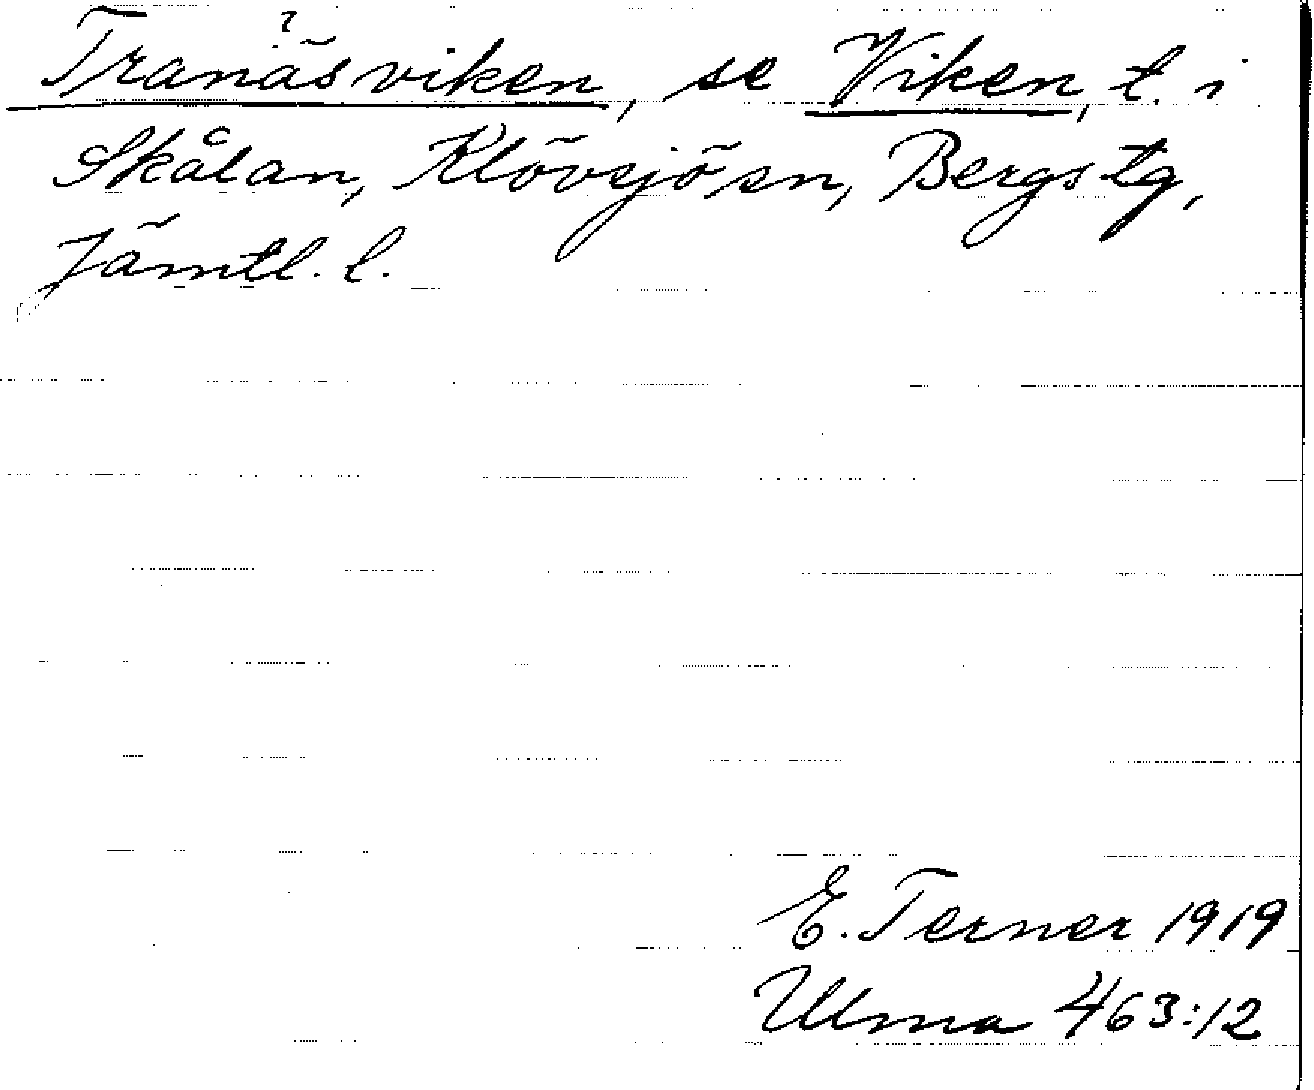 ?
Tranäsviken, se Viken, t. i
Skålan, Klövsjö sn, Bergs tg,
Jämtl. l.
E. Terner 1919
Ulma 463:12